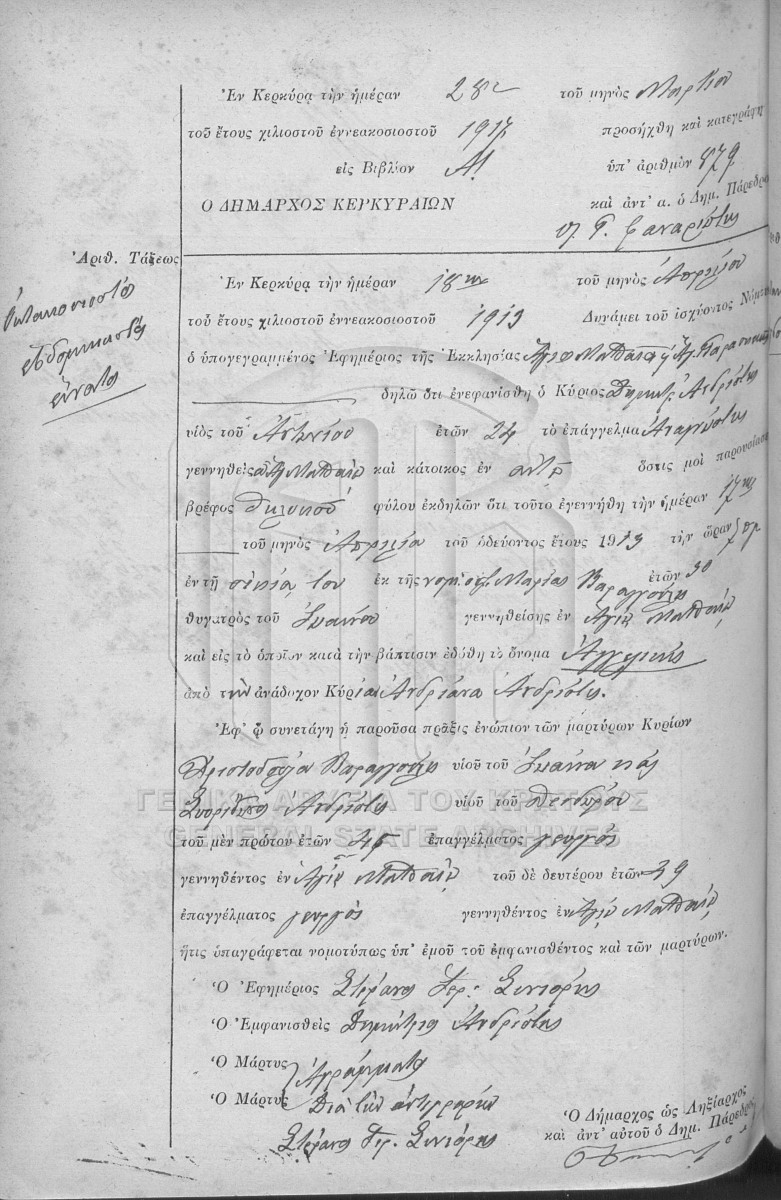 Ἐν Κερκύρᾳ τὴν ἡμέραν 28 τοῦ μηνὸς Μαρτίου
τοῦ ἔτους χιλιοστοῦ ἐννεακοσιοστοῦ 1917 προσήχθη καὶ κατεγράφη
εἰς Βιβλίον Α! ὑπ' ἀριθμὸν 879
Ο ΔΗΜΑΡΧΟΣ ΚΕΡΚΥΡΑΙΩΝ καὶ ἀντ' α. ὁ Δημ. Πάρεδρο
Ἀριθ. Τάξεως
ὀκτακοσιοστὸν
ἑβδομηκοστὸν
ἔνατον
Ἐν Κερκύρᾳ τὴν ἡμέραν 18ην τοῦ μηνὸς Ἀπριλίου
τοῦ ἔτους χιλιοστοῦ ἐννεακοσιοστοῦ 1913 Δυνάμει τοῦ ἰσχύοντος Νόμου
ὁ ὑπογεγραμμένος Ἐφημέριος τῆς Ἐκκλησίας Ἁγίου Ματθαίου
δηλῶ ὅτι ἐνεφανίσθη ὁ Κύριος Δημήτ. Ἀνδριώτης
υἱὸς τοῦ Ἀντωνίου ἐτῶν 24 τὸ ἐπάγγελμα
γεννηθεὶς Ἁγ. Ματθαίῳ καὶ κάτοικος ἐν αὐτῷ ὅστις μοὶ παρουσίασε
βρέφος θηλυκοῦ φύλου ἐκδηλῶν ὅτι τοῦτο ἐγεννήθη τὴν ἡμέραν 17ην
τοῦ μηνὸς Ἀπριλίου τοῦ ὁδεύοντος ἔτους 1913 τὴν ὥραν
ἐν τῇ οἰκίᾳ του ἐκ τῆς νομ. συζ. Μαρίας Βαραγγούλη ἐτῶν 30
θυγατρὸς τοῦ Ἰωάννου γεννηθείσης ἐν Ἁγίῳ Ματθαίῳ
καὶ εἰς τὸ ὁποῖον κατὰ τὴν βάπτισιν ἐδόθη τὸ ὄνομα Ἀγγελικὴ
ἀπὸ τὴν ἀνάδοχον Κυρίαν Ἀνδριάνα Ἀνδριώτη.
Ἐφ' ᾧ συνετάγη ἡ παροῦσα πρᾶξις ἐνώπιον τῶν μαρτύρων Κυρίων
Χριστοδούλου Βαραγγούλη υἱοῦ τοῦ Ἰωάννου καὶ
Σπυρίδωνος Ἀνδριώτη υἱοῦ τοῦ Θεοδώρου
ΓΕΝΙΚΑ ΑΡΧΕΙΑ ΤΟΥ ΚΡΑΤΟΥΣ
GENERAL STATE ARCHIVES
τοῦ μὲν πρώτου ἐτῶν 45 ἐπαγγέλματος γεωργὸς
γεννηθέντος ἐν Ἁγίῳ Ματθαίῳ τοῦ δὲ δευτέρου ἐτῶν 39
ἐπαγγέλματος γεωργὸς γεννηθέντος ἐν Ἁγίῳ Ματθαίῳ
ἥτις ὑπαγράφεται νομοτύπως ὑπ' ἐμοῦ τοῦ ἐμφανισθέντος καὶ τῶν μαρτύρων.
Ὁ Ἐφημέριος Στέφανος Ἱερ.
Ὁ Ἐμφανισθεὶς Δημήτριος Ἀνδριώτης
Ὁ Μάρτυς Ἀγράμματοι
Ὁ Μάρτυς Διὰ τὴν ἀντιγραφὴν
Στέφανος Ἱερ.
Ὁ Δήμαρχος ὡς Ληξίαρχος
καὶ ἀντ' αὐτοῦ ὁ Δημ. Πάρεδρος